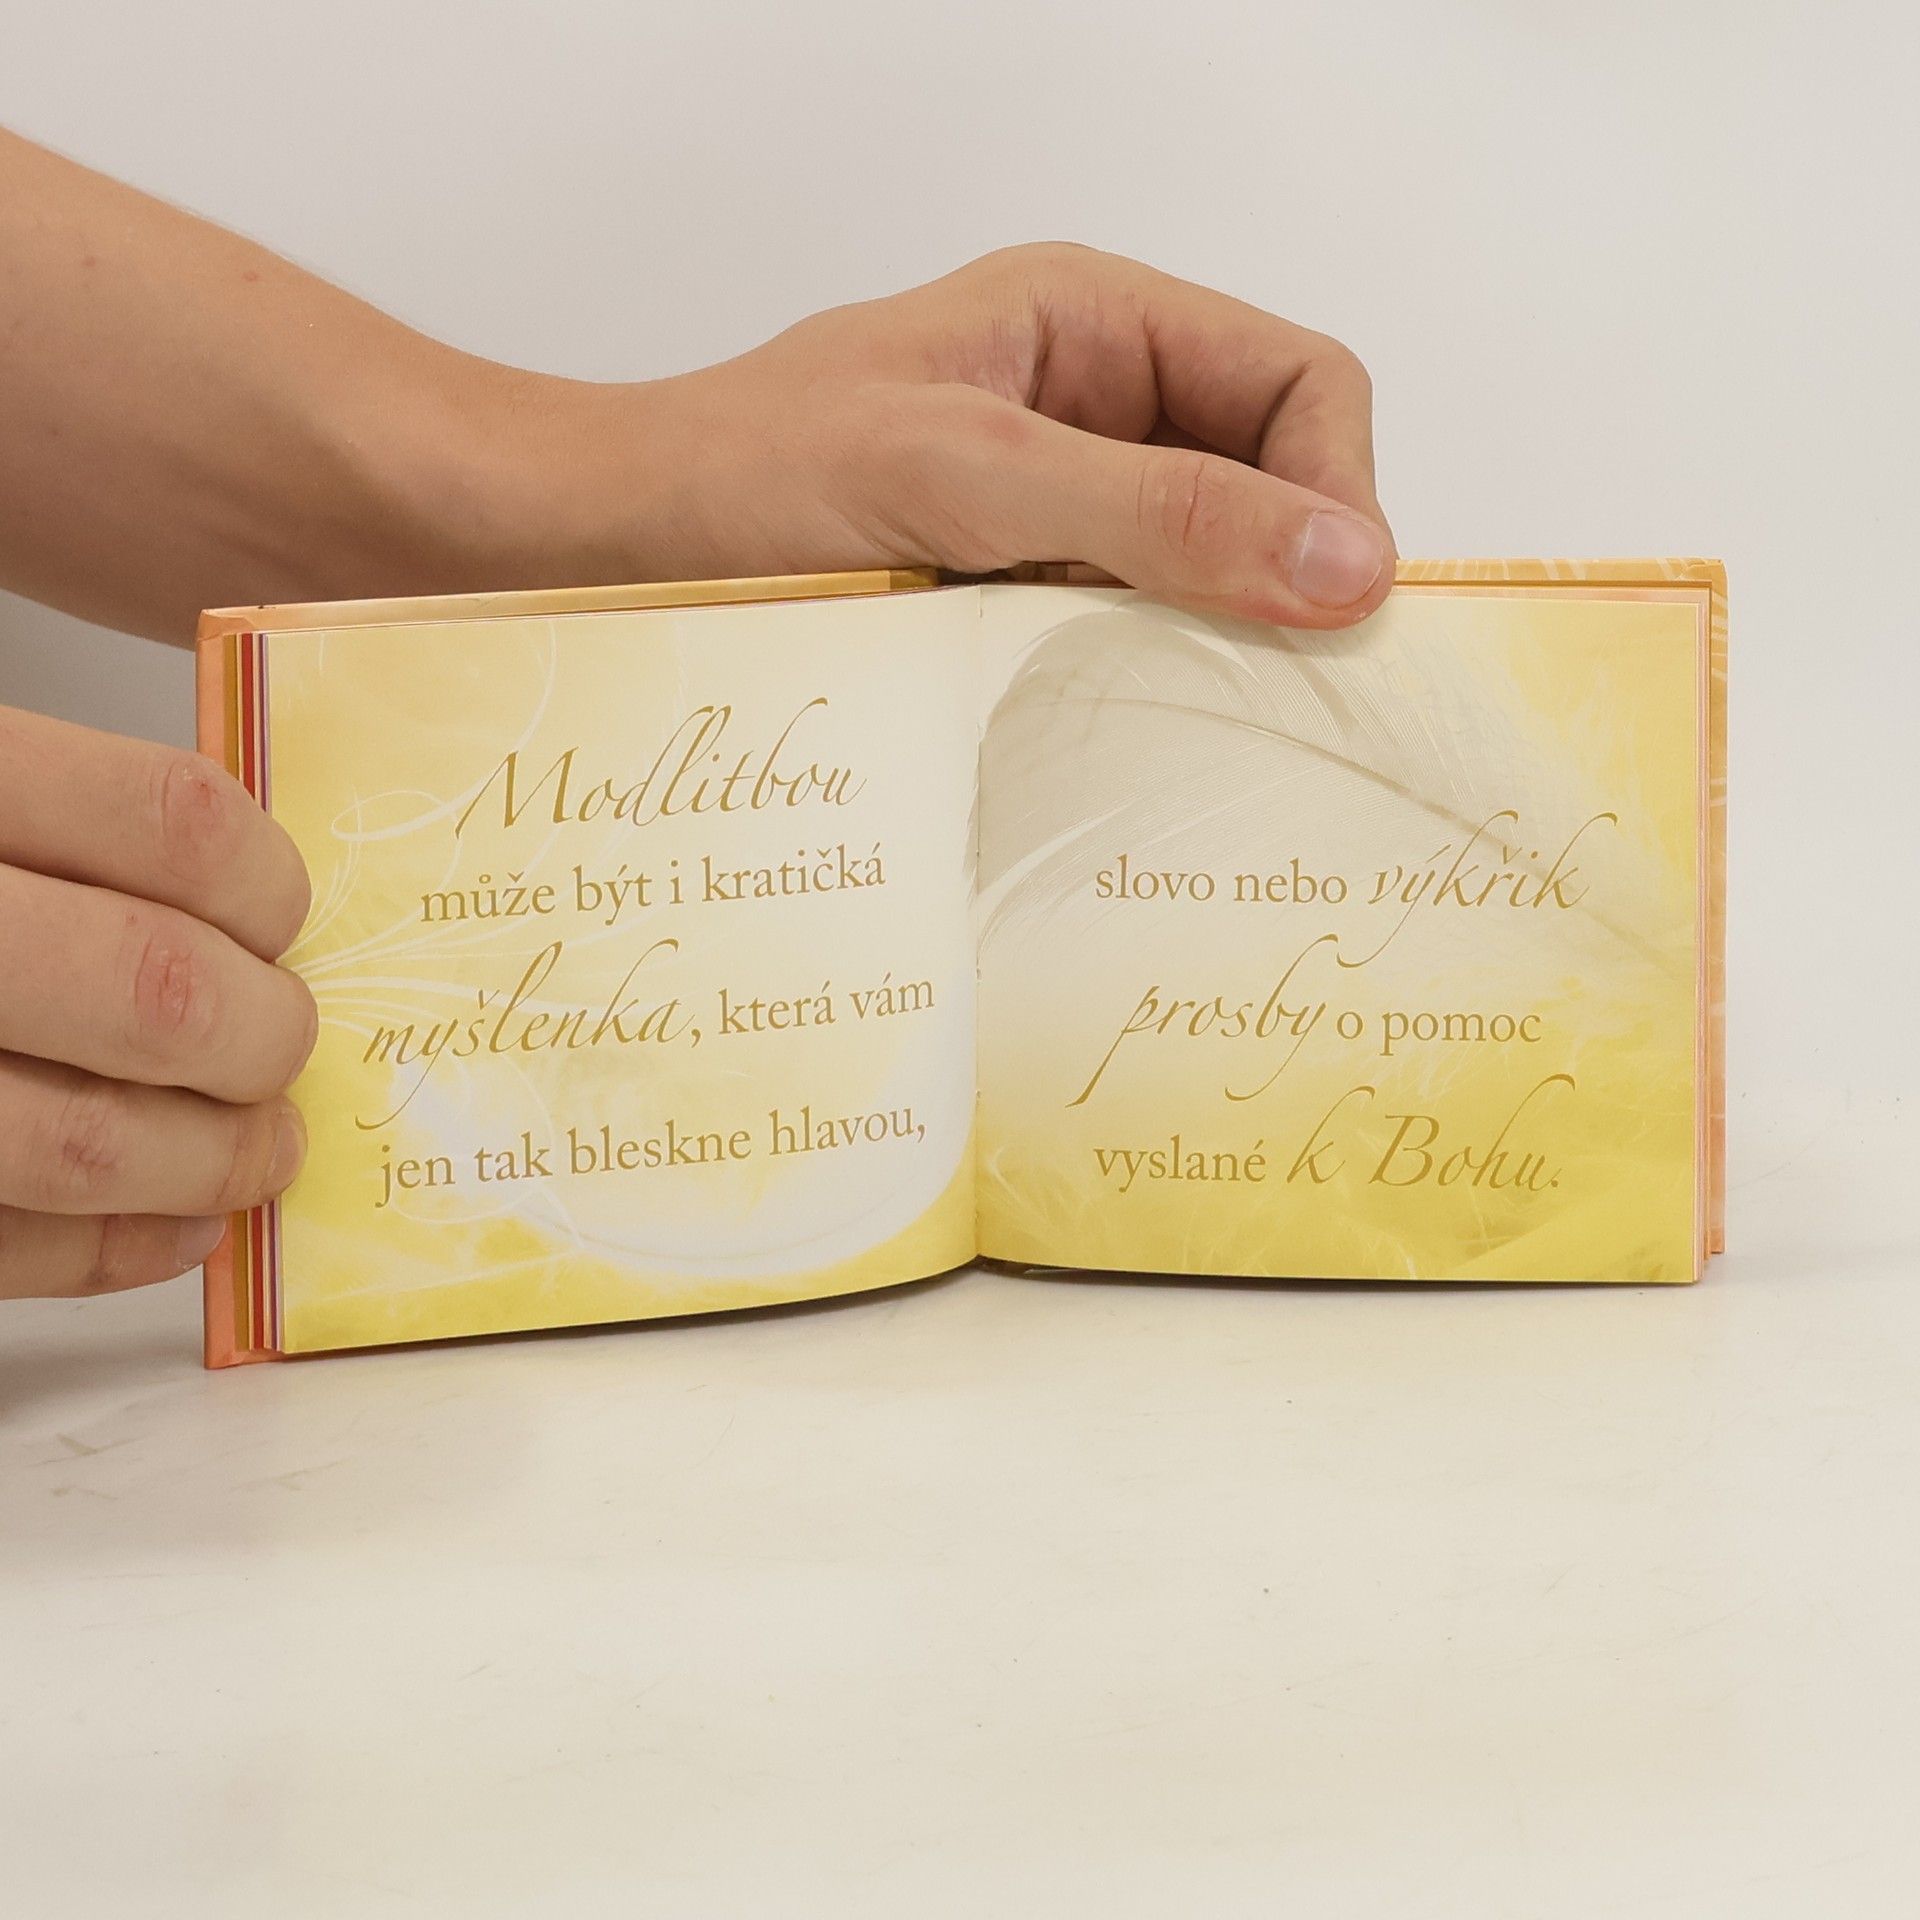 Modlitbou
může být i kratičká
myšlenka, která vám
jen tak bleskne hlavou,
slovo nebo výkřik
prosby o pomoc
vyslané k Bohu.